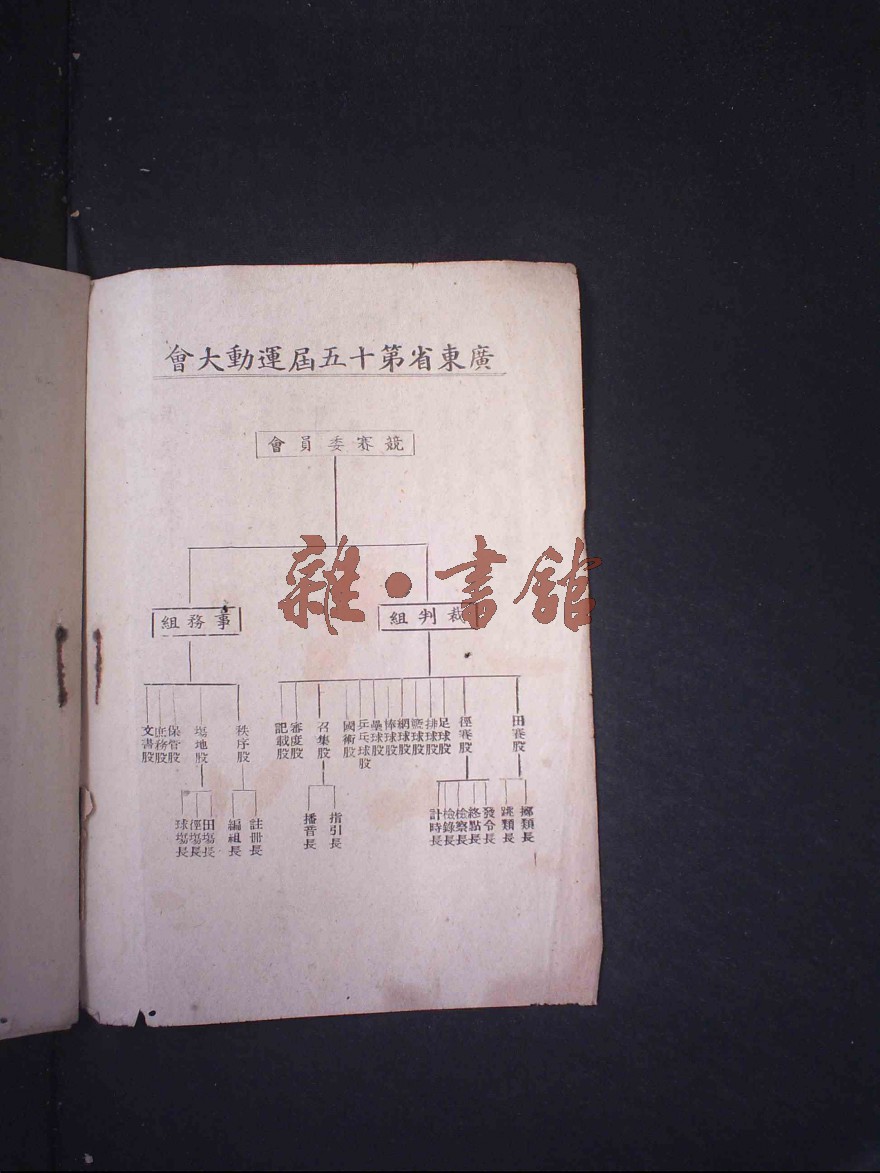 廣東省第十五屆運動大會
競賽委員會
裁判組
事務組
田賽股
徑賽股
足球股
排球股
籃球股
網球股
棒球股
壘球股
乒乓球股
國術股
召集股
審度股
記載股
秩序股
塲地股
保管股
庶務股
文書股
擲類長
跳類長
發令長
終點長
檢察長
檢錄長
計時長
指引長
播音長
註冊長
編組長
田塲長
徑塲長
球塲長
雜·書館